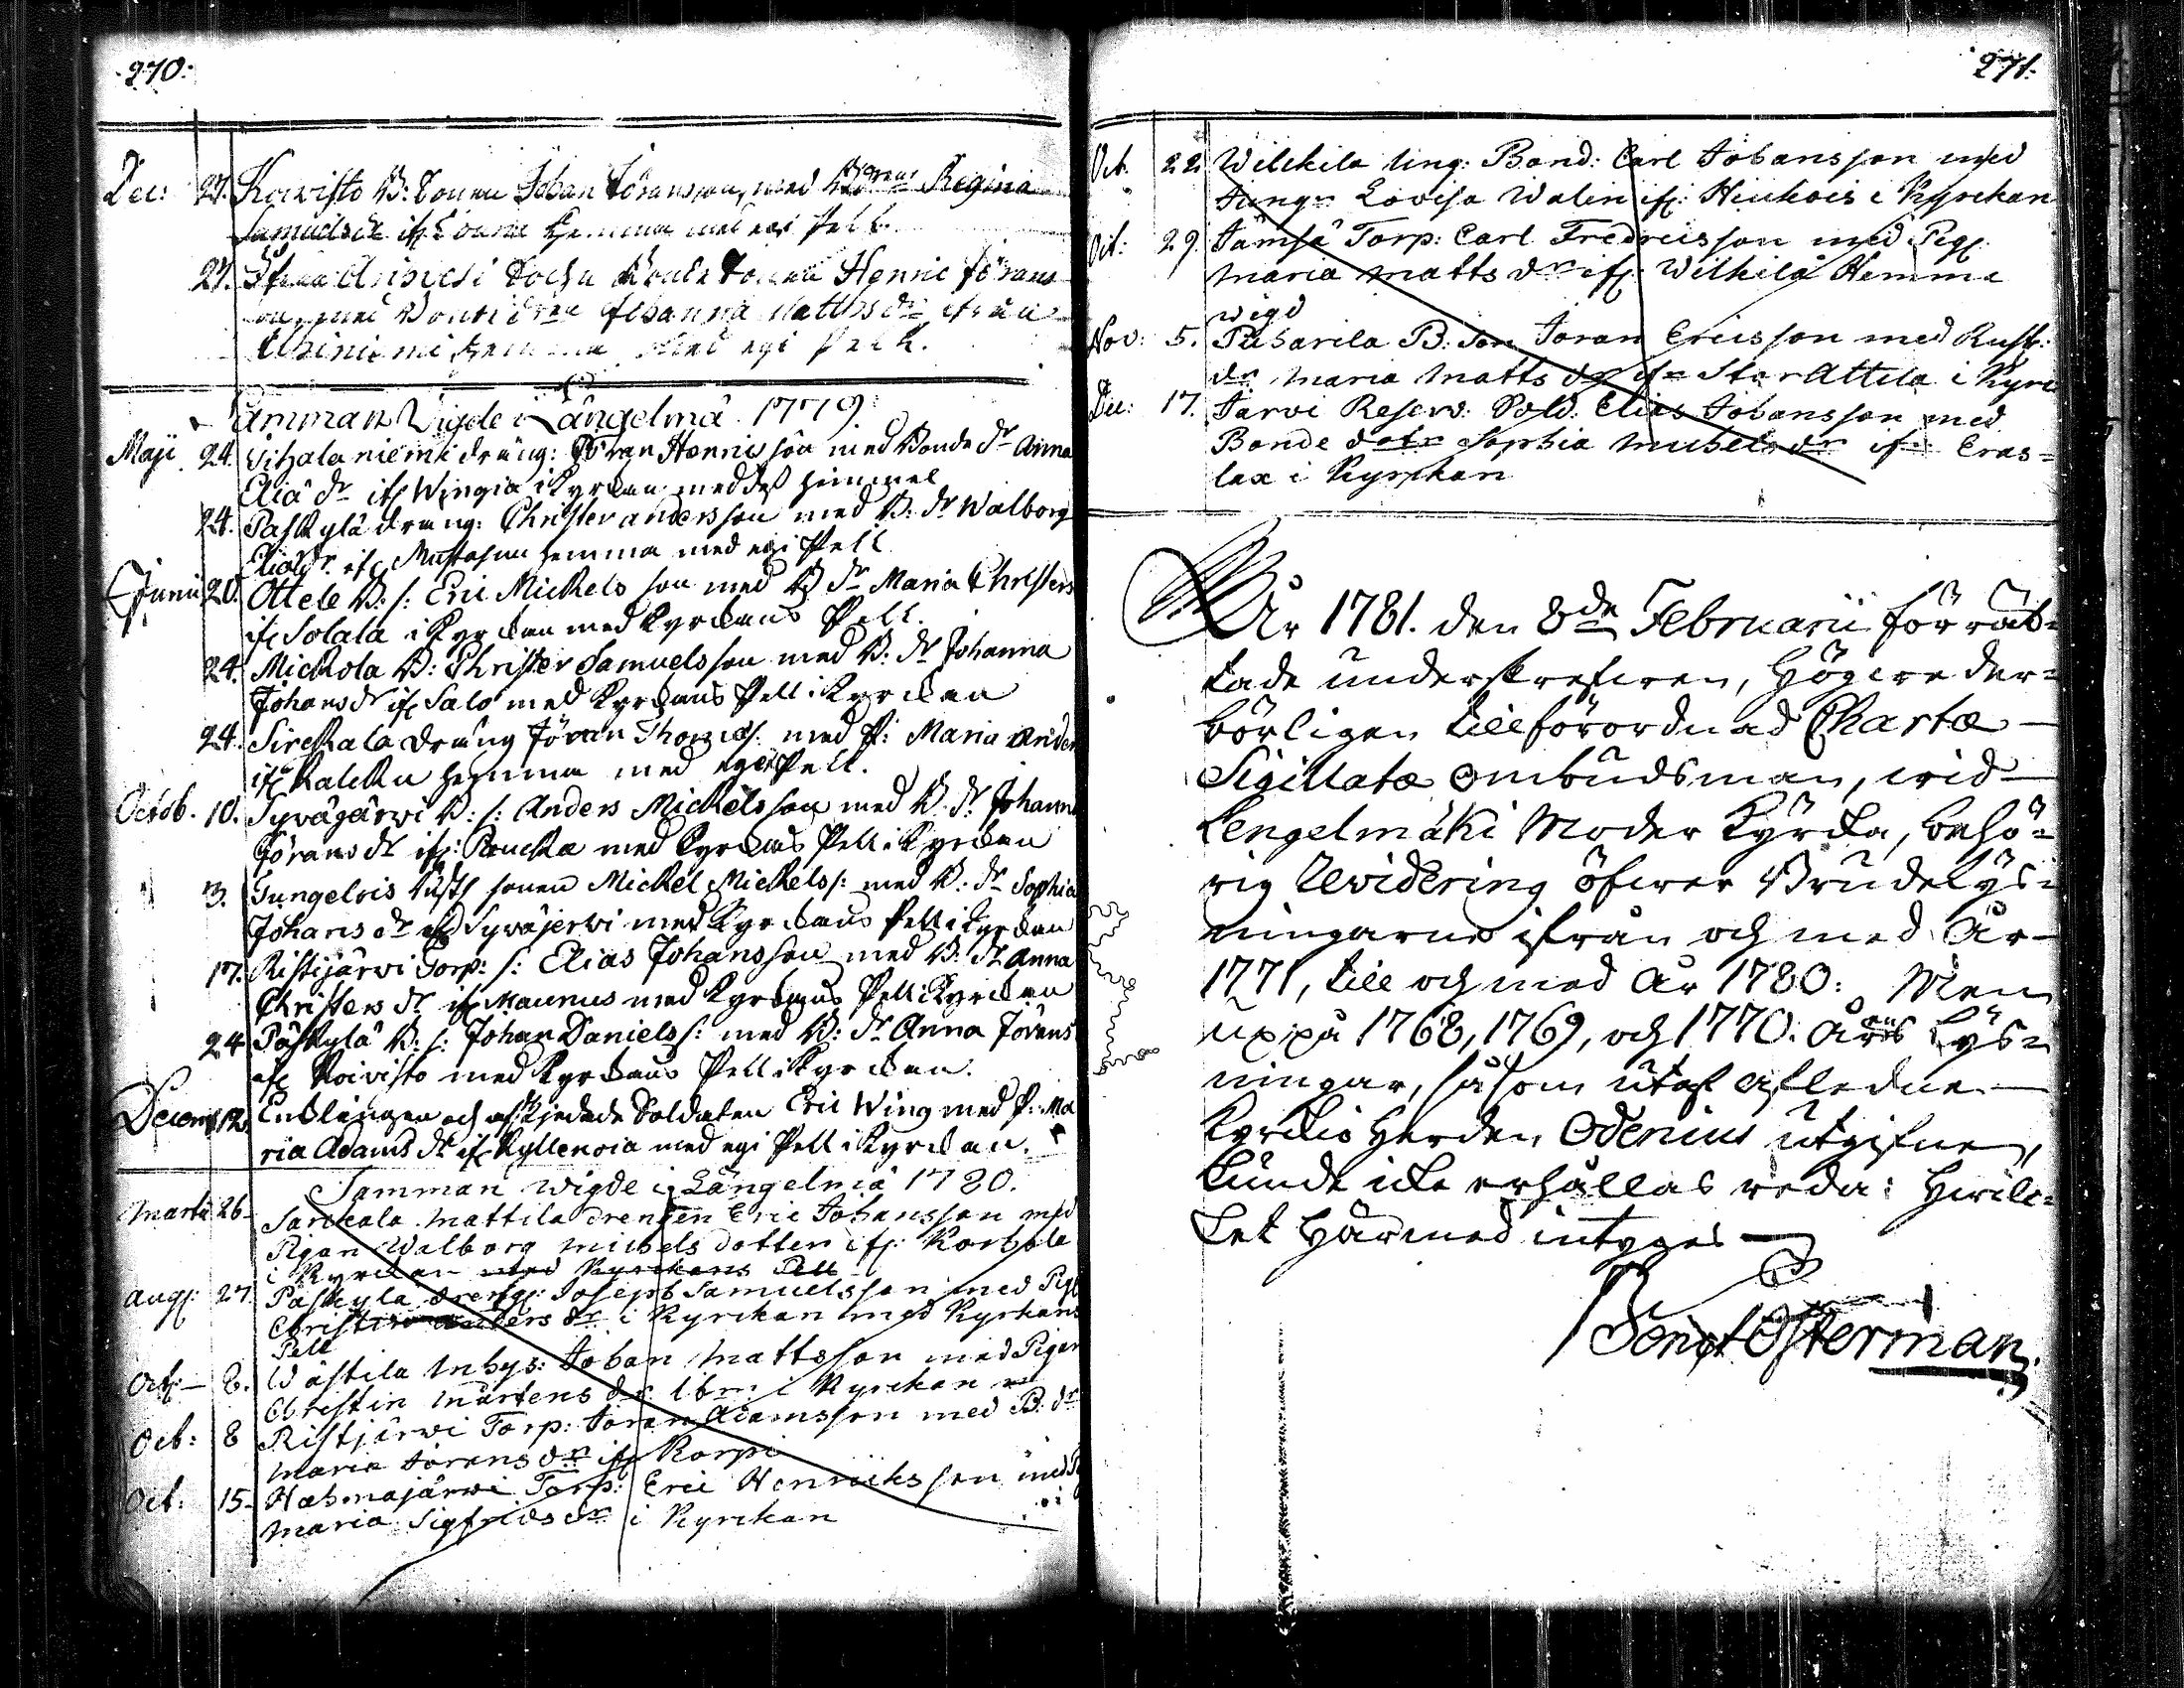 270:
Dec: 27. Koivisto B: Sonen Johan Jöransson, med B dren Regina
Samuelsdr if: hemma med egi Pell.
27. Bonde Sonen Henric Jörans
son, med Bonde dren Johanna Matthsdr ifrån
hemma med egi Pell.
Samman Wigde i Längelmä 1779.
Maji 24. Sihalaniemi dräng: Jöran Henricsson med Bonde dr Anna
Eliä dr if: Wingia i Kyrckan med dess himmel
24. Paskylä dräng: Christer andersson med B: dr Walborg
Eliædr if: Mustasaari hemma med egi Pell
Junii 20. Ottele B: s: Eric Mickelsson med B dr Maria Christers
if: Solala i Kyrckan med Kyrckans Pell.
24. Mickola B: Christer Samuelsson med B: dr Johanna
Johansdr if: Salo med Kyrckans Pell i Kyrckan
24. Sirckala dräng Jöran Thomæs: med P: Maria Anders
if: Kalcku hemma med egit Pell.
Octob. 10. Sywäjärwi B: s: Anders Mickelsson med B: dr Johanna
Jöransdr if: Poucka med Kyrckans Pell i Kyrckan
3. Jungelois Rusth sonen Mickel Mickelss: med B: dr Sophia
Johansdr if: Sywäjerwi med Kyrckans Pell i Kyrckan
17. Ristijärwi Torp: s: Elias Johansson med B: dr Anna
Christersdr if: Maunus med Kyrckans Pell i Kyrckan
24 Päskylä B: s: Johan Danielss: med B: dr Anna Jörans
if: Koivisto med Kyrckans Pell i Kyrckan.
Decemb 12. Encklingen och afskjedade Soldaten Eric Wing med P: Ma
ria Adamsdr if: Kyllenoia med egi Pell i Kyrckan.
Samman wigde i Längelmä 1780.
Martii 26. Sarckala Mattila drengen Eric Johansson med
Pigan Walborg Michels dotter if: Korhola
i Kyrckan med Kyrckans Pell
aug: 27. Päskylä dreng: Joseph Samuelsson med Pig:
Christin anders dr i Kyrckan med Kyrkans
Pell
Oct: 8. Wästila Inhys: Johan Mattsson med Pigan
Christin Mårtens dr ibm i Kyrckan
Oct: 8 Ristjärwi Torp: Jöran Adamsson med B: dr
Maria Jörans dr if: Korpi
Oct: 15. Hahmajärwi Torp: Eric Henricksson med P
Maria Sigfrids dr i Kyrckan
271.
Oct. 22. Wilckila Ung: Bond: Carl Johansson med
Jungr Lovisa Walin if: Hiukois i Kyrckan
Oct: 29. Jämsä Torp: Carl Fredricsson med Pig:
Maria Matts dr if: Wilkilä Hemma
wigd
Nov: 5. Puharila B: Son Jöran Ericsson med Rusth:
dr Maria Matts dr if: Stor Attila i Kyrc
Dec: 17. Järvi Reserv: Sold: Elias Johansson med
Bonde dotr Sophia Michels dr if: Eras-
lax i Kyrckan
År 1781. den 8de Februarii förrät-
tade underskrefven, högvederbörligen tillförordnad Chartæ
Sigillatæ Ombudsman, wid
Lengelmäki Moder Kyrcka, behö-
rig Revidering öfver Brudelys-
ningarne ifrån och med År
1771, till och med År 1780: Men
uppå 1768, 1769, och 1770. Års Lys-
ningar, såsom utaf afledne
Kyrckio Herden Odenius utgifne,
kunde icke erhållas reda: Hwilc-
ket härmed intyges
Bengt Österman